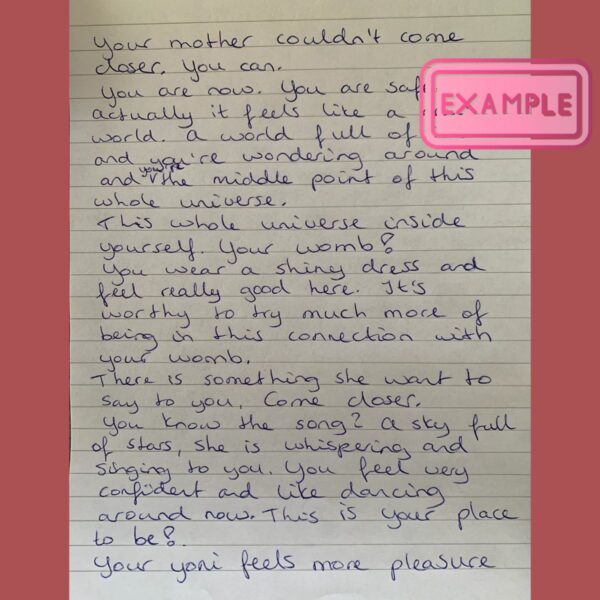 Your mother couldn't come
closer. You can.
You are now. You are
EXAMPLE
actually it feels like a
world. a world full of
and you're wondering around
and you're the middle point of this
whole universe.
This whole universe inside
yourself. Your womb!
You wear a shiny dress and
feel really good here. It's
worthy to try much more of
being in this connection with
your womb.
There is something she want to
say to you. Come closer.
You know the song? a sky full
of stars, she is whispering and
singing to you. You feel very
confident and like dancing
around now. This is your place
to be!
Your yoni feels more pleasure